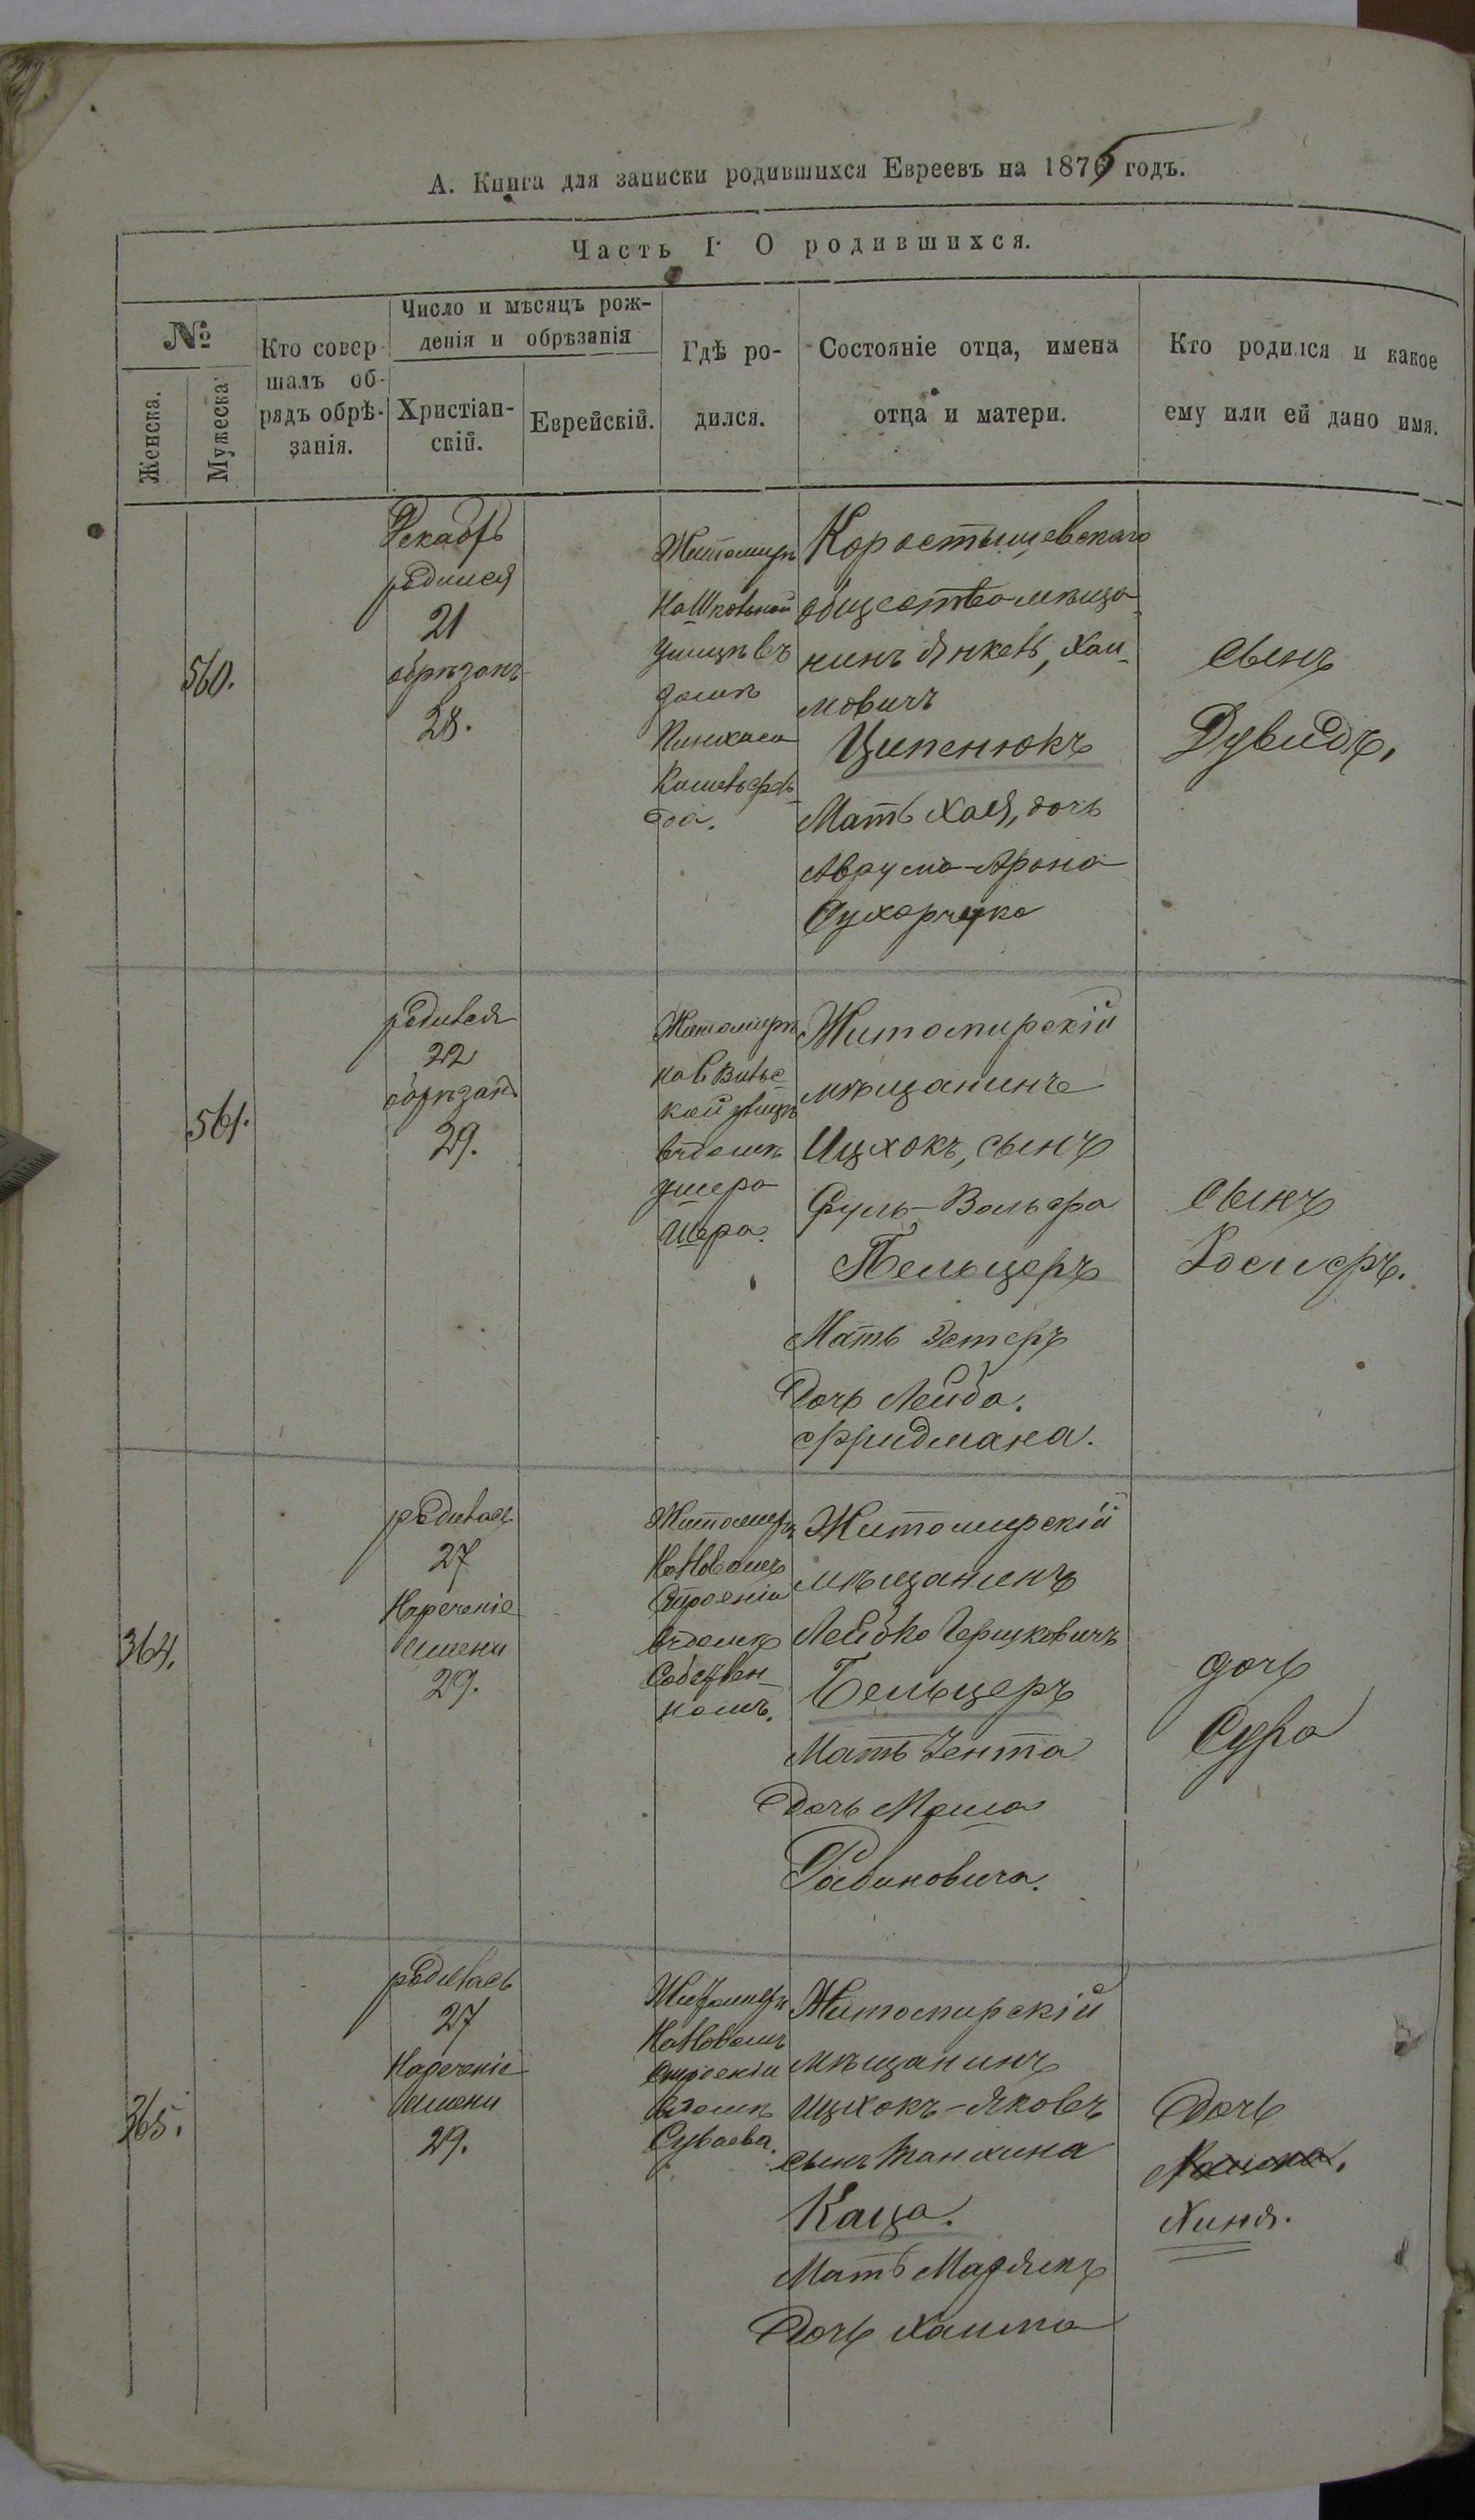 А. Книга для записки родившихся Евреевъ на 1875 годъ.
Часть I О родившихся.
№
Женска.
Мужеска
Кто совер-
шалъ об-
рядъ обрѣ-
занія.
Число и мѣсяцъ рож-
денія и обрѣзанія
Христіан-
скій.
Еврейскій.
Гдѣ ро-
дился.
Состояніе отца, имена
отца и матери.
Кто родился и какое
ему или ей дано имя.
560.
Декабрь
родился
21
обрѣзанъ
28.
Житомиръ
на
улицѣ въ
домѣ
Пинхаса
Коростышевскаго
общества мѣща-
нинъ Янкель, Хаи-
мовичъ
Ципенюкъ
Мать Хая, дочь
Аврума-Арона
Сухорчука
сынъ
Дувидъ.
561.
родился
22
обрѣзанъ
29.
Житомиръ
на Вильс-
кой улицѣ
въ домѣ
Ушера
Шера.
Житомирскій
мѣщанинъ
Ицхокъ, сынъ
Сруль-Вольфа
Пельцеръ
Мать Эстеръ
Дочь Лейба.
Фридмана.
сынъ
Іосифъ.
364.
родилась
27
Нареченіе
имени
29.
Житомиръ
на Новомъ
Строеніи
въ домѣ
Собствен-
номъ.
Житомирскій
мѣщанинъ
Лейбко Гершковичъ
Бельцеръ
Мать Іента
Дочь Мошка
Рабиновича.
дочь
Сура
365.
родилась
27
Нареченіе
имени
29.
Житомиръ
на Новомъ
Строеніи
въ домѣ
Житомирскій
мѣщанинъ
Ицхокъ-Яковъ
сынъ Танхина
Каца.
Мать Марьямъ
Дочь Хаима
Дочь
Хиня.